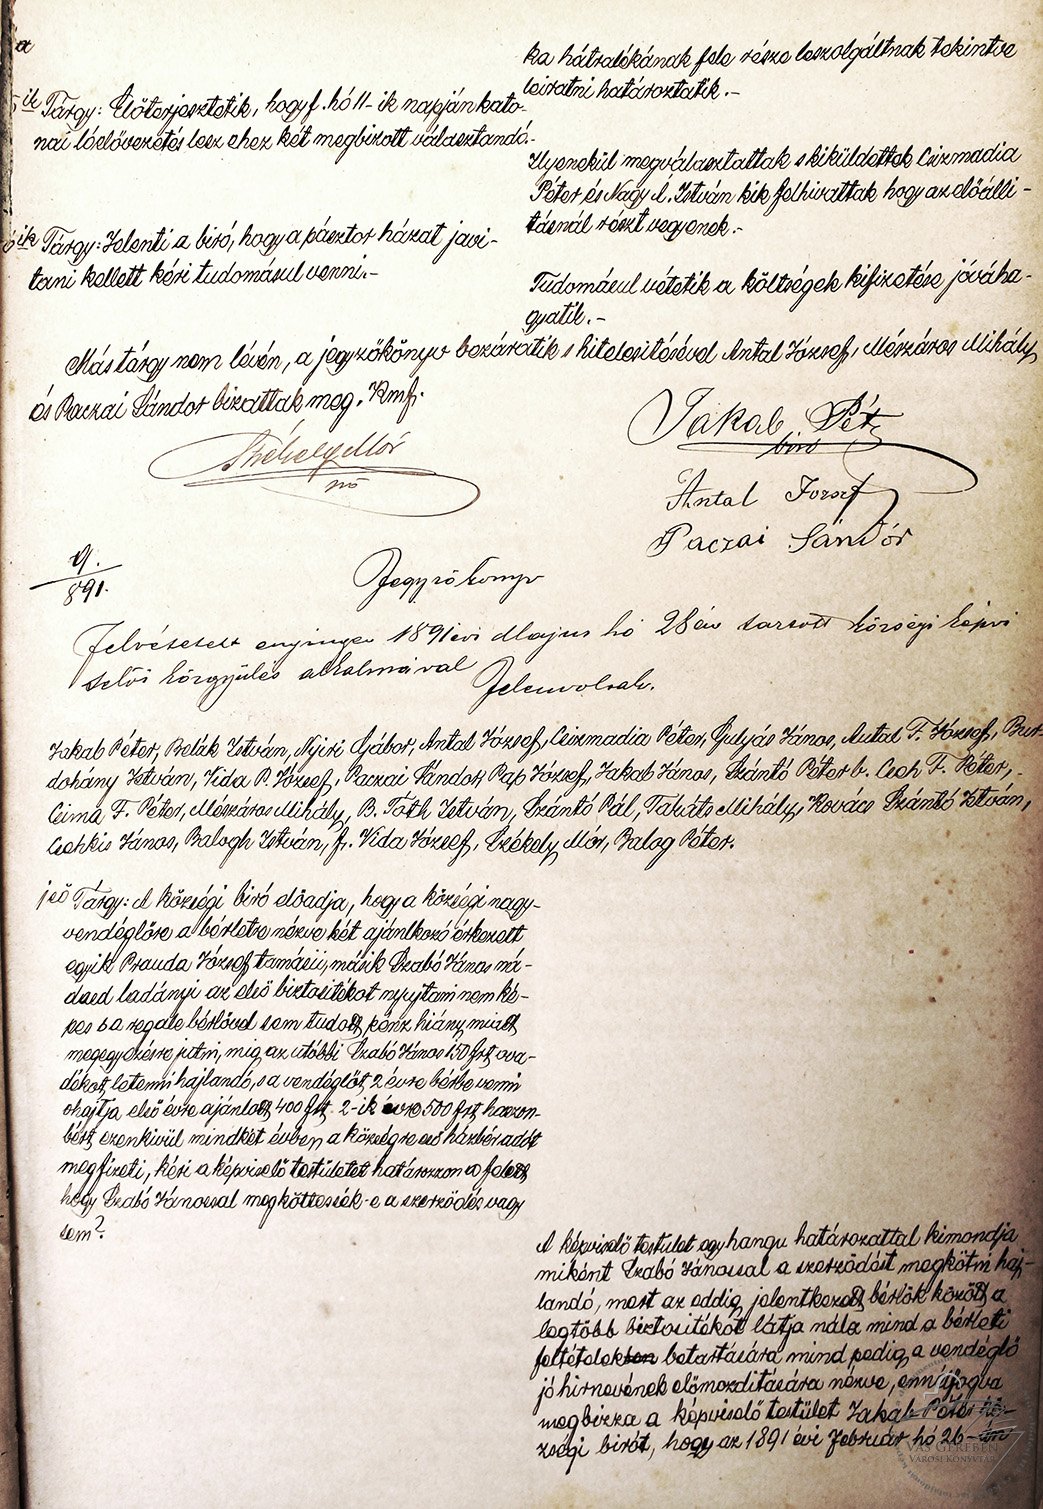 ka hátralékának fele része leszolgáltnak tekintve
leiratni határoztatik.-
ik Tárgy: Előterjesztetik, hogy f. hó 11-ik napján kato-
nai lóelővezetés lesz ehez két megbizott választandó.-
Ilyenekül megválasztattak s kiküldettek Csizmadia
Péter és Nagy Á. István kik felhivattak hogy az előálli-
tásnál részt vegyenek.-
6 ik Tárgy: Jelenti a biró, hogy a pásztor házat javi-
tani kellett kéri tudomásul venni.-
Tudomásul vétetik a költségek kifizetése jóváha-
gyatik.-
Más tárgy nem lévén, a jegyzőkönyv bezáratik s hitelesitésével Antal József, Mészáros Mihály
és Paczai Sándor bizattak meg. Kmf.
Székely Mór
Jakab Pét
biró
Antal József
Paczai Sándór
9.
891.
Jegyzőkönyv
Felvétetett enyingen 1891 évi Majus hó 28 án tartott községi képvi
selői közgyülés alkalmával
Jelenvoltak.
Jakab Péter, Belák István, Nyiri Gábor, Antal József, Csizmadia Péter, Gulyás János, Antal F. József, Bur-
dohány István, Vida P. József, Paczai Sándor, Pap József, Jakab János, Szántó Péter b. Cseh F. Péter,
Csima F. Péter, Mészáros Mihály, B. Tóth István, Szántó Pál, Takáts Mihály, Kovács Szántó István,
Csehkis János, Balogh István, f. Vida József, Székely Mór, Balog Péter.
Tárgy: A községi biró előadja, hogy a községi nagy-
vendéglőre a bérletre nézve két ajánlkozó érkezett
egyik Prauda József tamásii, másik Szabó János ná-
dasd ladányi az első biztositékot nyujtani nem ké-
pes s a regale bérlővel sem tudott pénz hiány miatt
megegyezésre jutni, mig az utóbbi Szabó János 150 frt ova-
dékot letenni hajlandó, s a vendéglőt 2 évre bérbe venni
ohajtja, első évre ajánlott 400 frt 2-ik évre 500 frt haszon-
bért, ezenkivül mindkét évben a községre eső házbér adót
megfizeti, kéri a képviselő testületet határozzon a felett
hogy Szabó Jánossal megköttessék-e a szerződés vagy
sem?.
A képviselő testület egyhangu határozattal kimondja
miként Szabó Jánossal a szerződést megkötni haj-
landó, mert az eddig jelentkezett bérlők között a
legtöbb biztositékot látja nála mind a bérleti
feltételekben betartására mind pedig a vendéglő
jó hirnevének előmozditására nézve, ennélfogva
megbizza a képviselő testület Jakab Péter köz-
ségi birót, hogy az 1891 évi Február hó 26-án
VAS GEREBEN
VÁROSI KÖNYVTÁR